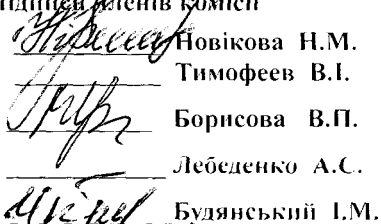 членів комісії
Новікова Н.М.
Тимофеев В.І.
Борисова В.П.
Лебеденко А.С.
Будянський І.М.